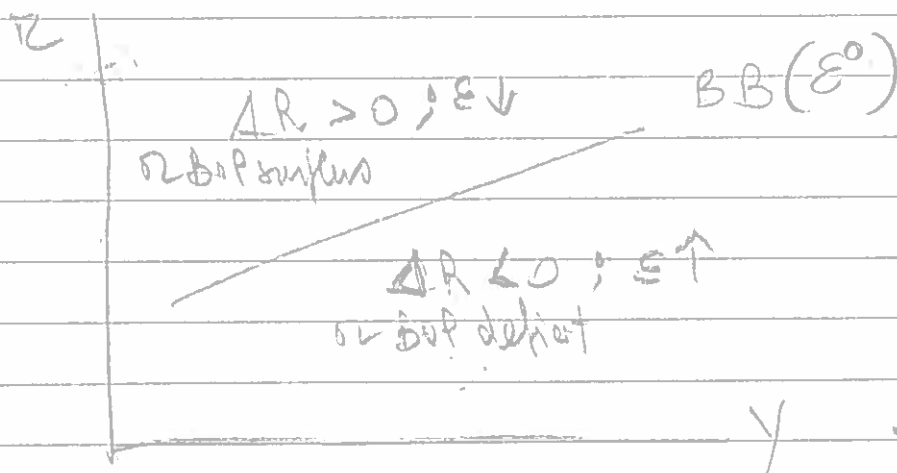 r
ΔR > 0 ; ε↓
BB(ε⁰)
or BoP surplus
ΔR < 0 ; ε↑
or BoP deficit
Y